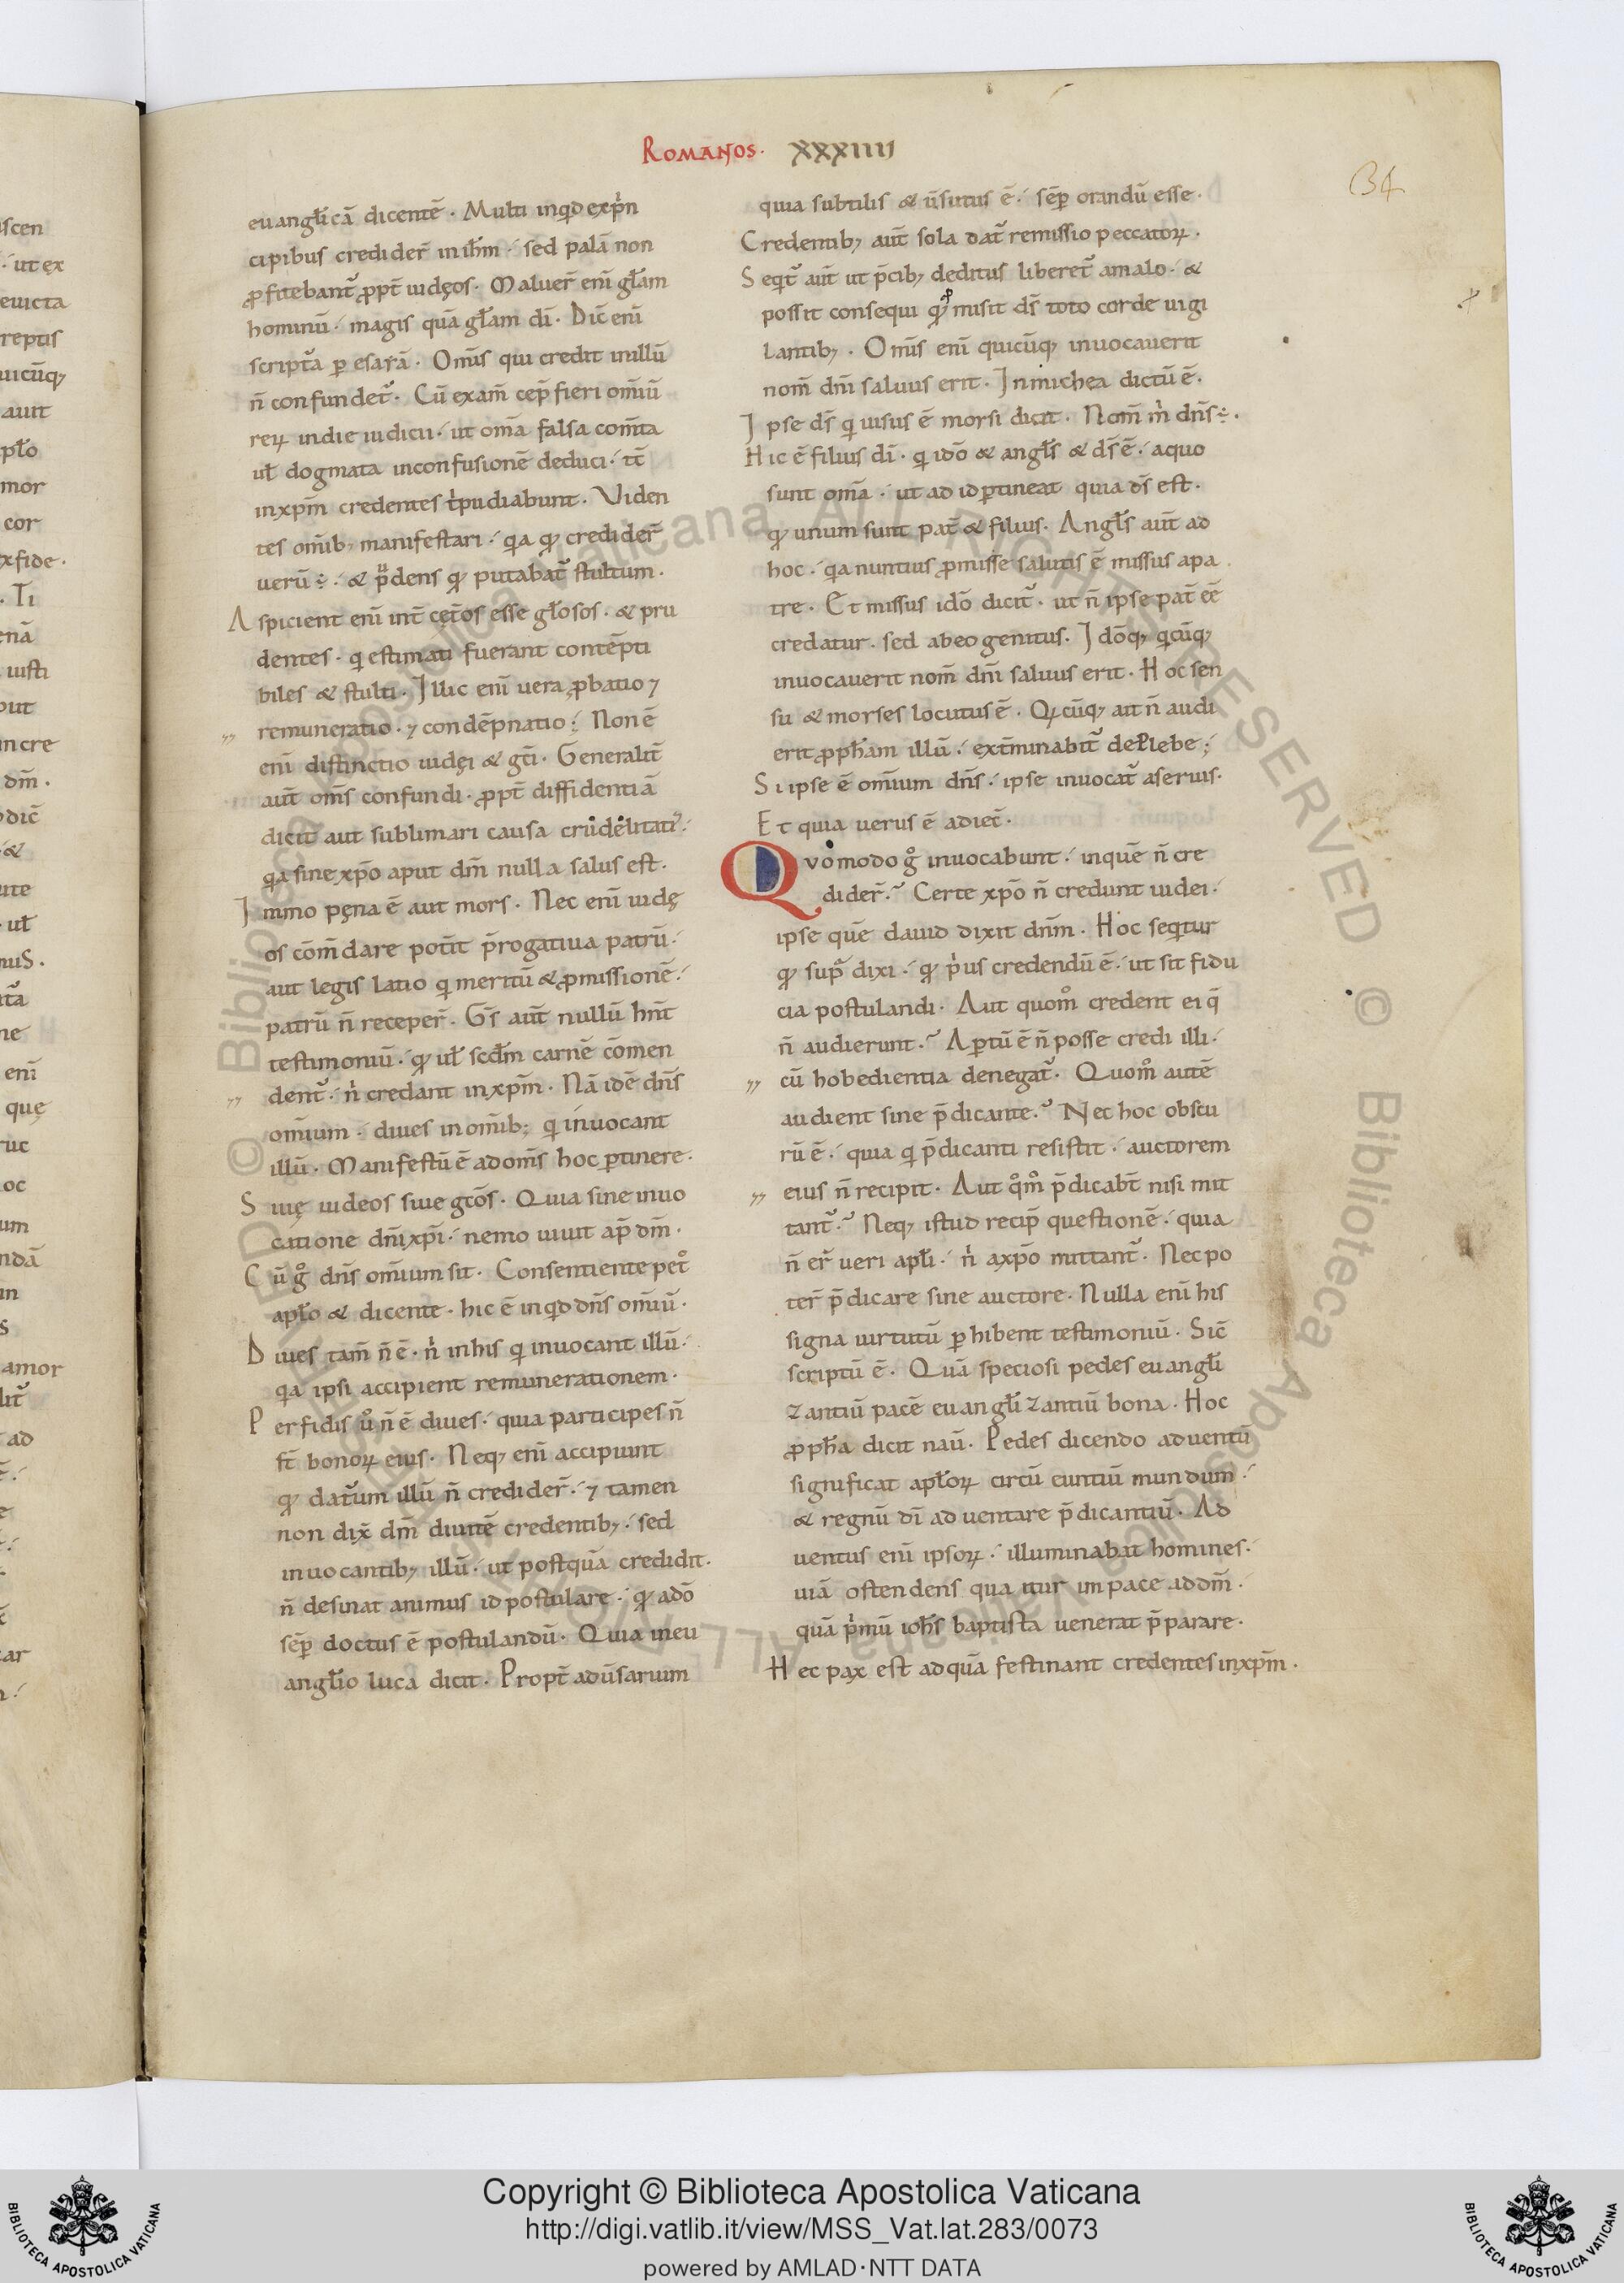 ROMANOS. XXXIIII
34
euangl̄icā dicentē. Multi inq̇d exp̍n
cipibus crediderr̄ in ih̄m. sed palā non
ꝓfitebant᷑ ꝓpt̄ iudęos. Maluer̄ enī gl̄am
hominū. magis quā gl̄am dī. Dic̄ enī
script᷑a ꝑ esaïā. Om̄s qui credit inillū
n̄ confundet᷑. Cū exam̄ cep̄ fieri om̄iū
reꝝ indie iudicii. ut om̄a falsa com̄ta
ul̄ dogmata inconfusionē deduci. tc̄
inxp̄m credentes t̍pudiabunt. Viden
tes om̄ib; manifestari. qa qđ credider̄
uerū. & p̄dens qđ putabat᷑ stultum.
Aspicient enī int̄ cęt̄os esse gl̄osos. & pru
dentes. q estimati fuerant contēpti
biles & stulti. Illic enī uera ꝓbatio ⁊
remuneratio. ⁊ condēpnatio. Non ē
enī distinctio iudęi & gt̄i. Generalit̄
aūt om̄s confundi. ꝓpt̄ diffidentiā
dicit aut sublimari causa crudelitati᷑.
qa sine xp̄o aput dm̄ nulla salus est.
Immo pęna ē aut mors. Nec enī iudę
os com̄dare pot̄it p̄rogatiua patrū.
aut legis latio q meritū & ꝓmissionē.
patrū n̄ receper̄. Gs̄ aūt nullū hn̄t
testimoniū. qđ ul̄ scd̄m carnē cōmen
dent᷑. n̍ credant inxp̄m. Nā idē dn̄s
om̄ium. diues in om̄ib; q inuocant
illū. Manifestū ē ad om̄s hoc ꝑtinere.
Siuę iudeos siue gt̄os. Quia sine inuo
catione dn̄i xp̄i. nemo uiuit ap̄ dm̄.
Cū g̊ dn̄s om̄ium sit. Consentiente pet̊
apl̄o & dicente. hic ē inq̇d dn̄s om̄iū.
Diues tam̄ n̄ ē. n̍ inhis q inuocant illū.
qa ipsi accipient remunerationem.
Perfidis ů n̄ ē diues. quia participes n̄
st̄ bonoꝝ eius. Neq; enī accipiunt
qđ dat᷑um illū n̄ credider̄. ⁊ tamen
non dix̄ dm̄ diuitē credentib;. sed
inuocantib; illū. ut postquā credidit.
n̄ desinat animus id postulare. qđ adō
sēꝑ doctus ē postulandū. Quia ineu
angl̄io luca dicit. Propt̄ adūsarium
quia subtilis & ūsutus ē. sēꝑ orandū esse.
Credentib; aūt sola dat᷑ remissio peccatoꝝ.
Seqt᷑ aūt ut p̄cib; deditus liberet᷑ amalo. &
possit consequi qđ ꝓmisit ds̄ toto corde uigi
lantib;. Om̄s enī quicūq; inuocauerit
nom̄ dn̄i saluus erit. In michea dictū ē.
Ipse ds̄ q uisus ē moysi dicit. Nom̄ m̍ dn̄s.
Hic ē filius dī. q idō & angl̄s & ds̄ ē. aquo
sunt om̄a. ut ad id ꝑtineat quia ds̄ est.
qđ unum sunt pat̄ & filius. Angl̄s aūt ad
hoc. qa nuntius ꝓmisse salutis ē missus apa
tre. Et missus idō dicit᷑. ut n̄ ipse pat̄ ēē
credatur. sed ab eo genitus. Idōq; qcūq;
inuocauerit nom̄ dn̄i saluus erit. Hoc sen
su & moyses locutus ē. Qcūq; ait n̄ audi
erit ꝓph̄am illū. ext̄minabit᷑ de plebe;
Si ipse ē om̄ium dn̄s. ipse inuocat᷑ aseruis.
Et quia uerus ē adiec̄.
Qvomodo g̊ inuocabunt. inquē n̄ cre
dider̄. Certe xp̄o n̄ credunt iudei.
ipse quē dauid dixit dn̄m. Hoc seqtur
qđ sup̄ dixi. qđ p̍us credendū ē. ut sit fidu
cia postulandi. Aut quom̊ credent ei q̄
n̄ audierunt. Aꝑtū ē n̄ posse credi illi.
cū hobedientia denegat᷑. Quom̊ autē
audient sine p̄dicante. Nec hoc obscu
rū ē. quia q p̄dicanti resistit. auctorem
eius n̄ recipit. Aut q̊m̊ p̄dicab̄t nisi mit
tant᷑. Neq; istud recip̄ questionē. quia
n̄ er̄ ueri apl̄i. n̍ axp̄o mittant᷑. Nec po
ter̄ p̄dicare sine auctore. Nulla enī his
signa uirtutū ꝑhibent testimoniū. Sic̄
scriptū ē. Quā speciosi pedes euangl̄i
zantiū pacē euangl̄izantiū bona. Hoc
ꝓph̄a dicit naū. Pedes dicendo aduentū
significat apl̄oꝝ circū euntiū mundum.
& regnū dī aduentare p̄dicantiū. Ad
uentus enī ipsoꝝ. illuminabat homines.
uiā ostendens qua itur in pace ad dm̄.
quā p̍mū ioh̄s baptista uenerat p̄parare.
Hec pax est adquā festinant credentes inxp̄m.
Copyright © Biblioteca Apostolica Vaticana
http://digi.vatlib.it/view/MSS_Vat.lat.283/0073
powered by AMLAD·NTT DATA